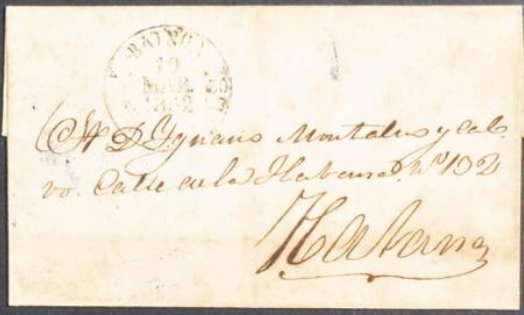 BAINOA
19
MAR.
1862
Sr. D. Ygnacio Montalvo y Cal-
vo Calle de la Habana nº 132
Habana